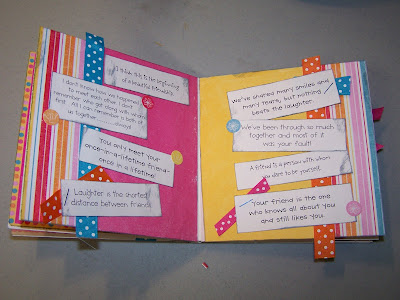 I think this is the beginning
of a beautiful friendship.
I don't know how we happened
to meet each other. I don't
remember who got along with whom
first. All I can remember is both of
us together..........always!
You only meet your
once-in-a-lifetime friend-
once in a lifetime!
Laughter is the shortest
distance between friends.
We've shared many smiles and
many tears, but nothing
beats the laughter.
We've been through so much
together and most of it
was your fault!
A friend is a person with whom
you dare to be yourself.
Your friend is the one
who knows all about you
and still likes you.